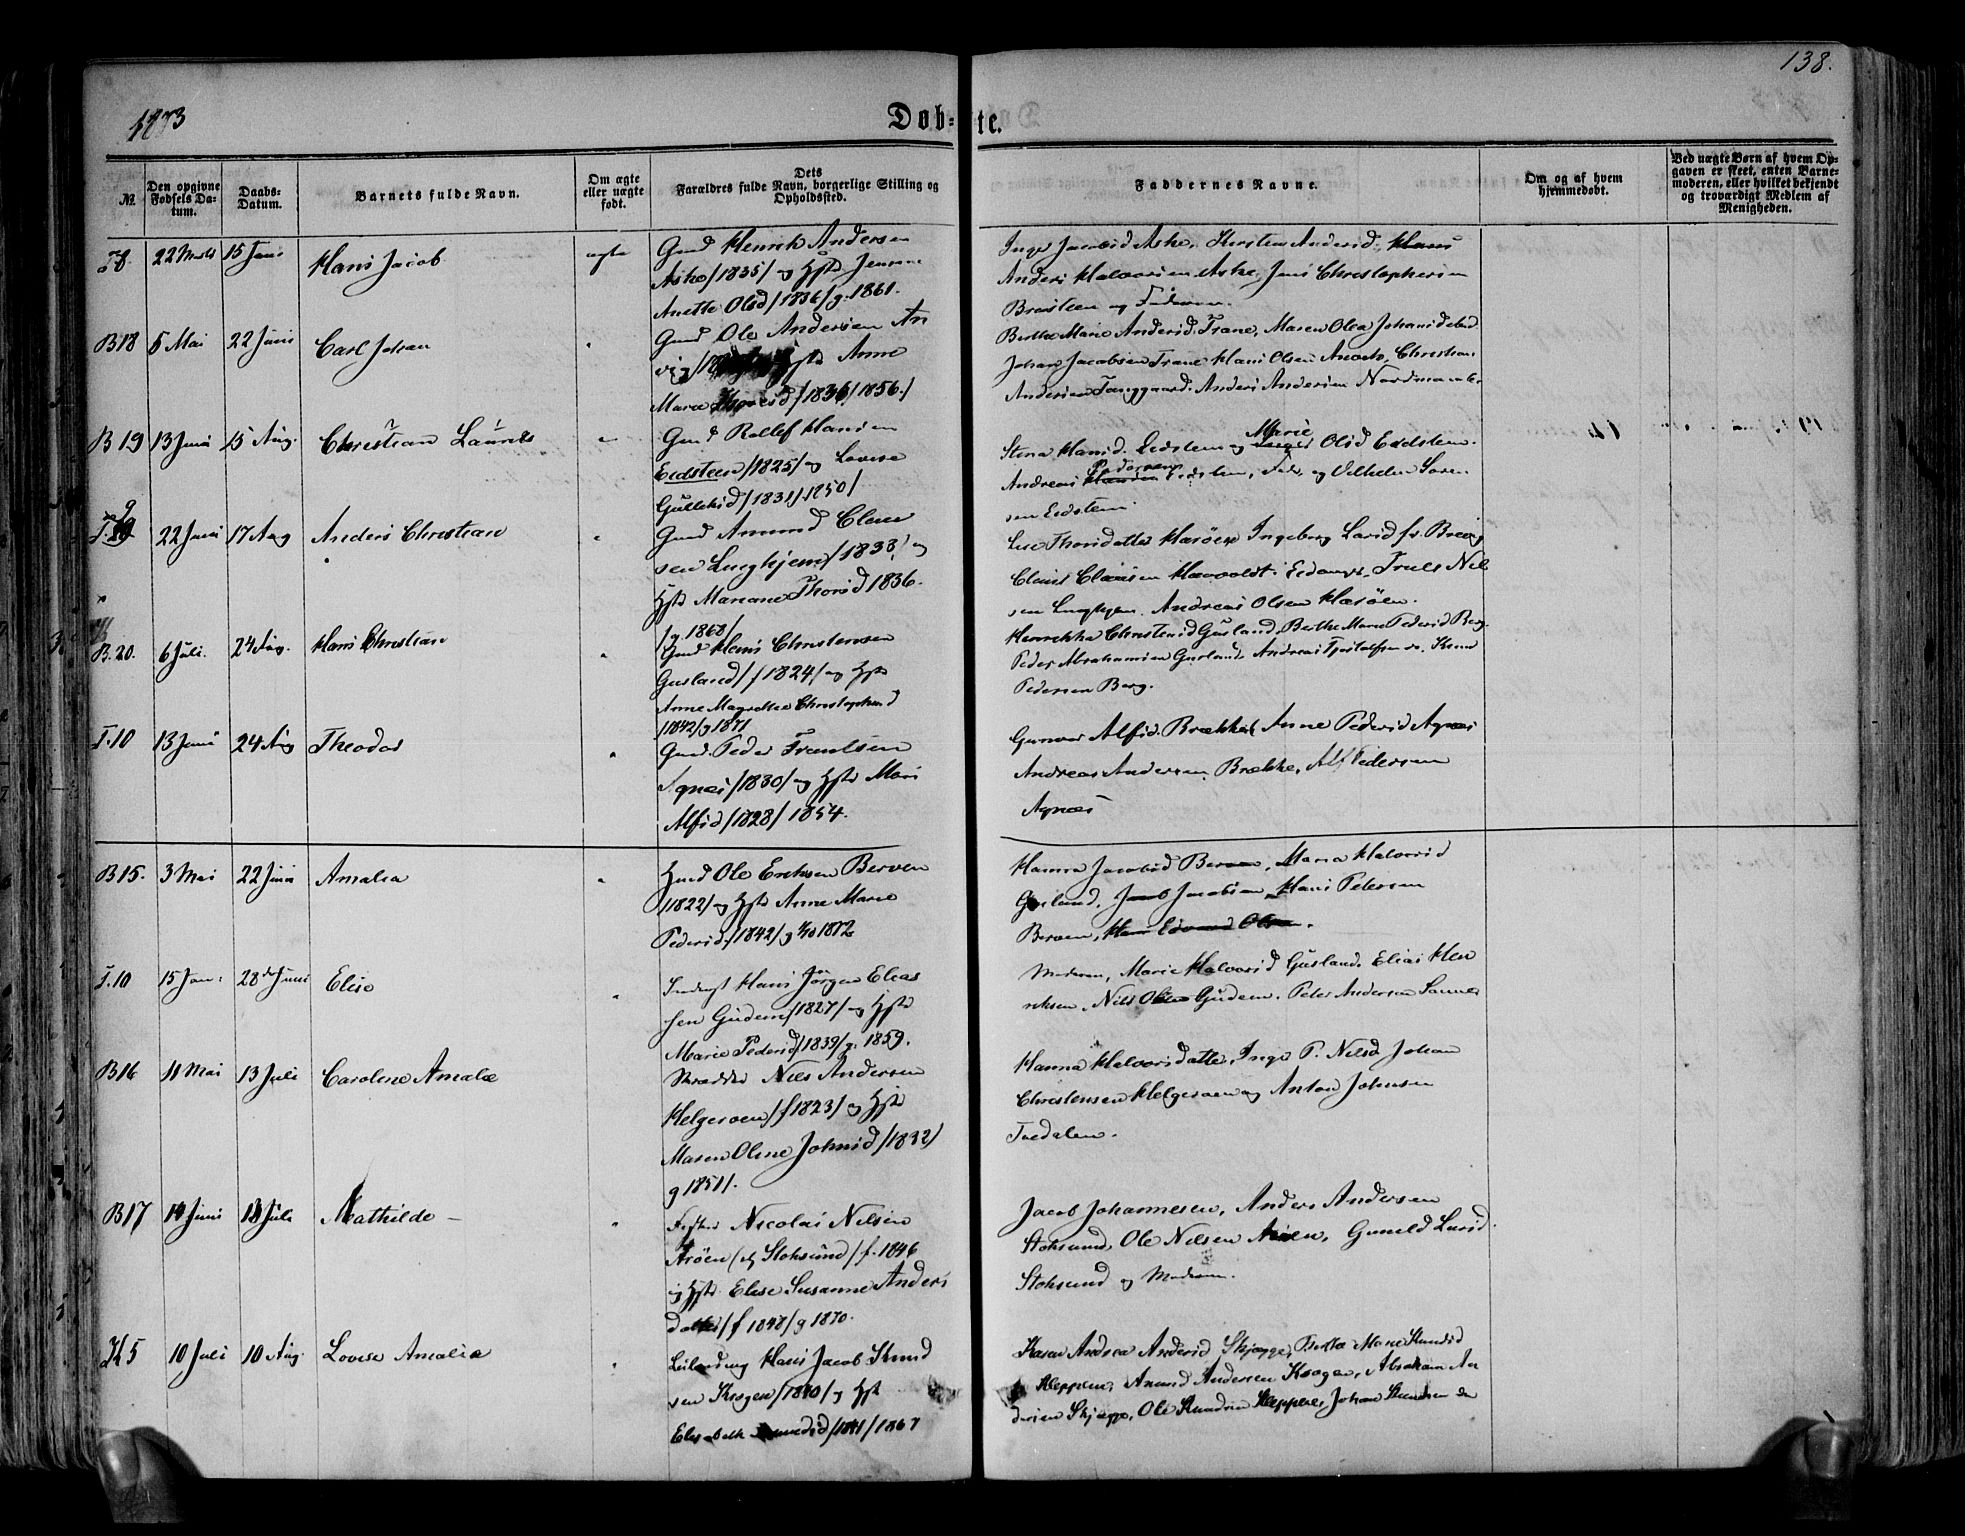 138.
1873
Døb-
te.
№.
Den opgivne
Fødsels Da-
tum.
Daabs-
Datum.
Barnets fulde Navn.
Om ægte
eller uægte
født.
Dets
Forældres fulde Navn, borgerlige Stilling og
Opholdssted.
Faddernes Navne.
Om og af hvem
hjemmedøbt.
Ved uægte Børn af hvem Op-
gaven er skeet, enten Barne-
moderen, eller hvilket bekjendt
og troværdigt Medlem af
Menigheden.
T 8. 22 Marts 15 Juni Hans Jacob ægte
Gmd Henrik Andersen
Aske /1835/ og Hst Jensine
Anette Olsd /1836/ g. 1861.
Inger Jacobsd Aske, Kirsten Andersd, Hans
Anders Halvorsen Aske, Jens Christophersen
og Faderen.
B 18 5 Mai 22 Juni Carl Johan
Gmd Ole Andersen An
vig / Hst Anne
Marie /1836/ 1856./
Berthe Marie Andersd. Trane, Maren Olea Johansd
Johan Jacobsen Trane Hans Olsen Christian
Andersen Tanggaard. Anders Andersen
B 19 13 Juni 15 Aug. Christian Laurits
Gmd Rollef Hansen
Eidsteen /1825/ og Lovise
Gulliksd /1831/ 1850/
Stina Hansd. Eidsten og Marie Olsd Eidsten.
Andreas Pedersen Eidsten, Fad. og Vilhelm Søren
sen Eidsten
T. 9 22 Juni 17 Aug Anders Christian
Gmd Amund Clau
sen Lunghjem /1833/ og
Hst Mariane Thorsd 1836.
/g. 1868/
Lise Thorsdatter Harøen Ingeborg Larsd fr. Brevig
Claus Clausen Havvoldt i Eidanger, Truls Niel
sen Lunghjem, Andreas Olsen Harøen.
B. 20. 6 Juli. 24 Aug. Hans Christian
Gmd Hans Christensen
Gusland / f 1824/ og Hst
Anne Magrethe Christophersd
/1842/ g 1871
Henrikka Christensd Gusland, Berthe Marie Pedersd Berg.
Peder Abrahamsen Gusland. Andreas Knud
Pedersen Berg.
T. 10 13 Juni 24 Aug Theodor
Gmd. Peder Frantsen
Agnes /1830/ og Hst Mari
Alfsd /1828/ 1854.
Gunvor Alfsd. Brække, Anne Pedersd Agnes
Andreas Andersen Brække, Alf Pedersen
Agnes
B 15. 3 Mai 22 Juni Amalia
Hmd Ole Eriksen Berven
/1822/ og Hst Anne Marie
Pedersd. /1842/ g 1872
Hanna Jacobsd Berven, Maria Halvorsd
Gusland. Jacob Jacobsen Hans Petersen
Berven, Hans Edvard Olsen.
T. 10 15 Jan. 28de Juni Elise
Inderst Hans Jørgen Elias
sen Gudem /1827/ og Hst
Marie Pedersd /1839/ g. 1859.
Moderen, Marie Halvorsd Gusland. Elias Hen
riksen, Nils Olsen Gudem. Peter Andersen
B 16 11 Mai 13 Juli Caroline Amalie
Skrædder Nils Andersen
Helgeroen / f 1823/ og Hst
Maren Oline Johnsd /1832/
g 1851/.
Hanna Halvorsdatter, Inger P. Nilsd Johan
Christensen Helgeroen og Anton Johnsen
B 17 14 Juni 13 Juli Mathilde –
Fisker Nicolai Nilsen
Arøen (af Stoksund / f. 1846
og Hst. Elise Susanne Anders
datter / f 1848/ g 1870.
Jacob Johannesen, Anders Andersen
Stoksund, Ole Nilsen Arøen, Gunild Larsd.
Stoksund og Moderen.
H 5 10 Juli 10 Aug. Lovise Amalie
Leilending Hans Jacob Knud
sen Krogen /1840/ og Hst
Elisabeth /1841/ 1867
Karen Andrea Andersd Skjægge, Marie Knudsd
Kleppen, Amund Andersen Krogen, Abraham An
dersen Skjægge, Ole Knudsen Kleppen, Johan Knudsen